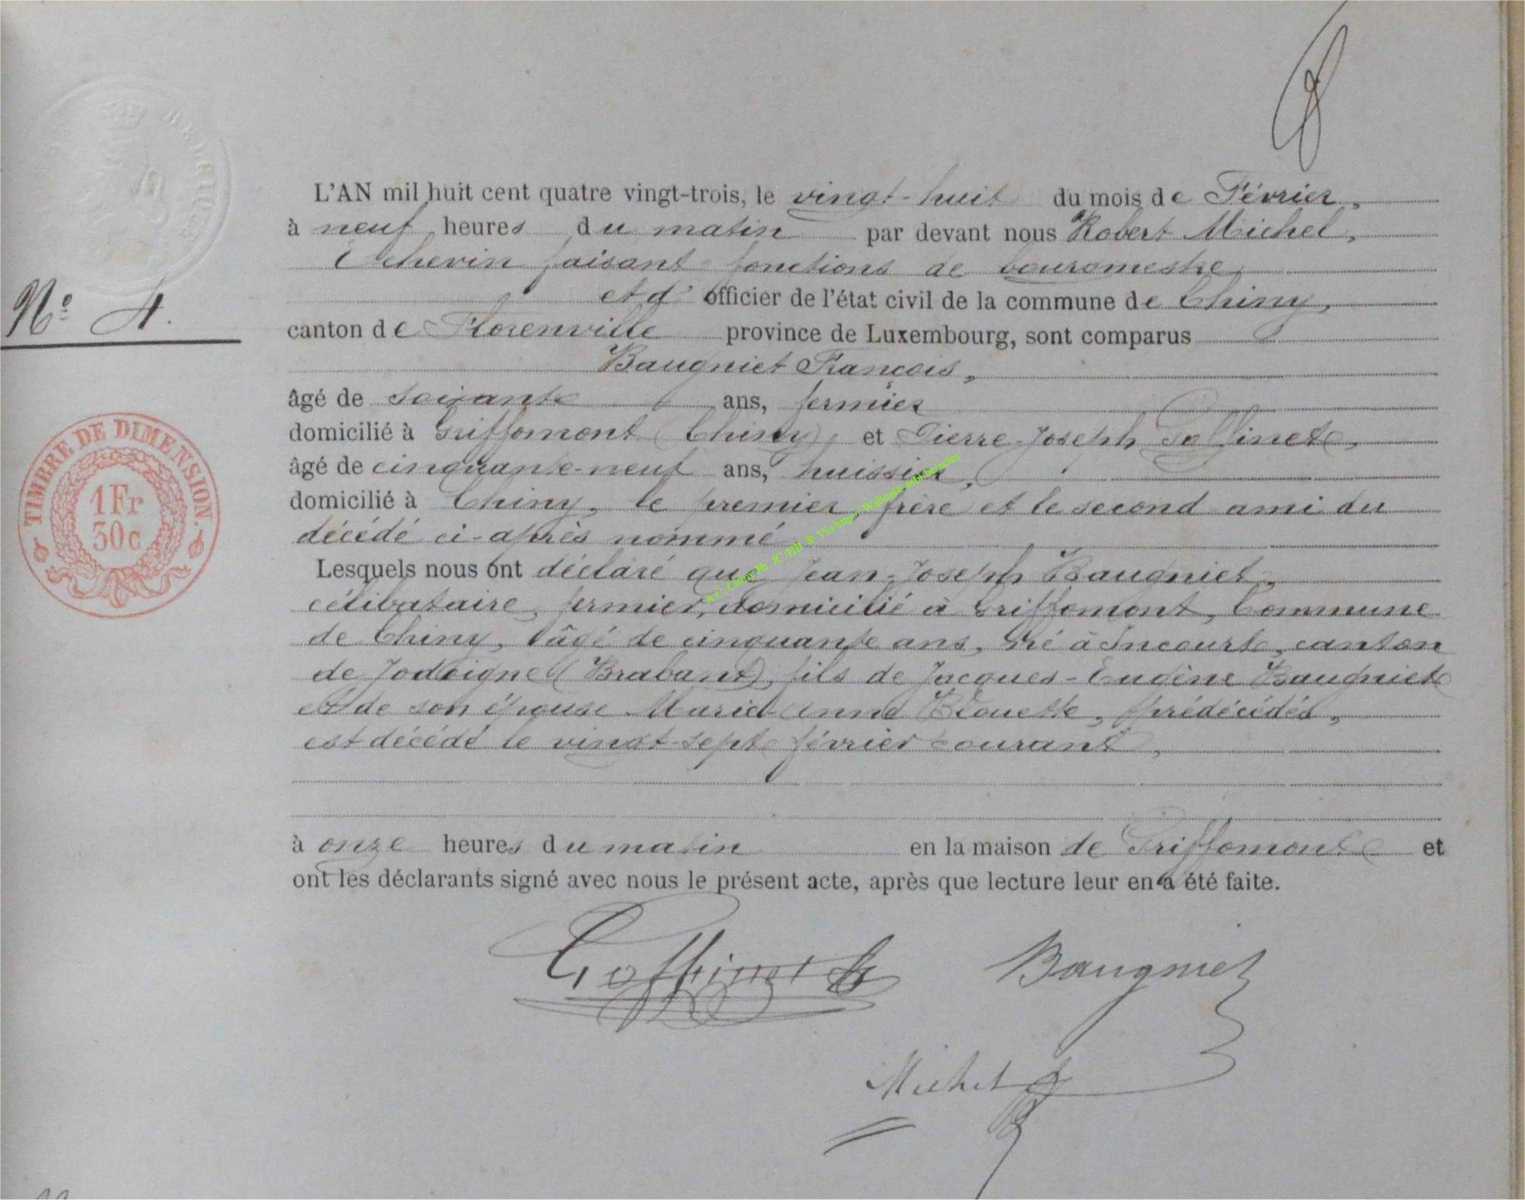 L'AN mil huit cent quatre vingt-trois, le vingt-huit du mois de Février,
à neuf heures du matin par devant nous Robert Michel,
Echevin faisant fonctions de bourgmestre
et d' officier de l'état civil de la commune de Chiny,
N° 4.
canton de Florenville province de Luxembourg, sont comparus
Baugniet François,
âgé de soixante ans, fermier
domicilié à Griffomont (Chiny), et Pierre-Joseph Goffinet,
âgé de cinquante-neuf ans, huissier,
domicilié à Chiny, le premier frère et le second ami du
décédé ci-après nommé
TIMBRE DE DIMENSION.
1 Fr
30 c
Lesquels nous ont déclaré que Jean-Joseph Baugniet,
célibataire, fermier, domicilié à Griffomont, Commune
de Chiny, âgé de cinquante ans, né à Incourt, canton
de Jodoigne (Brabant), fils de Jacques-Eugène Baugniet
et de son épouse Maria-Anna Blouette, prédécédés,
est décédé le vingt-sept février courant,
à onze heures du matin en la maison de Griffomont et
ont les déclarants signé avec nous le présent acte, après que lecture leur en a été faite.
Goffinet Baugniet
Michel